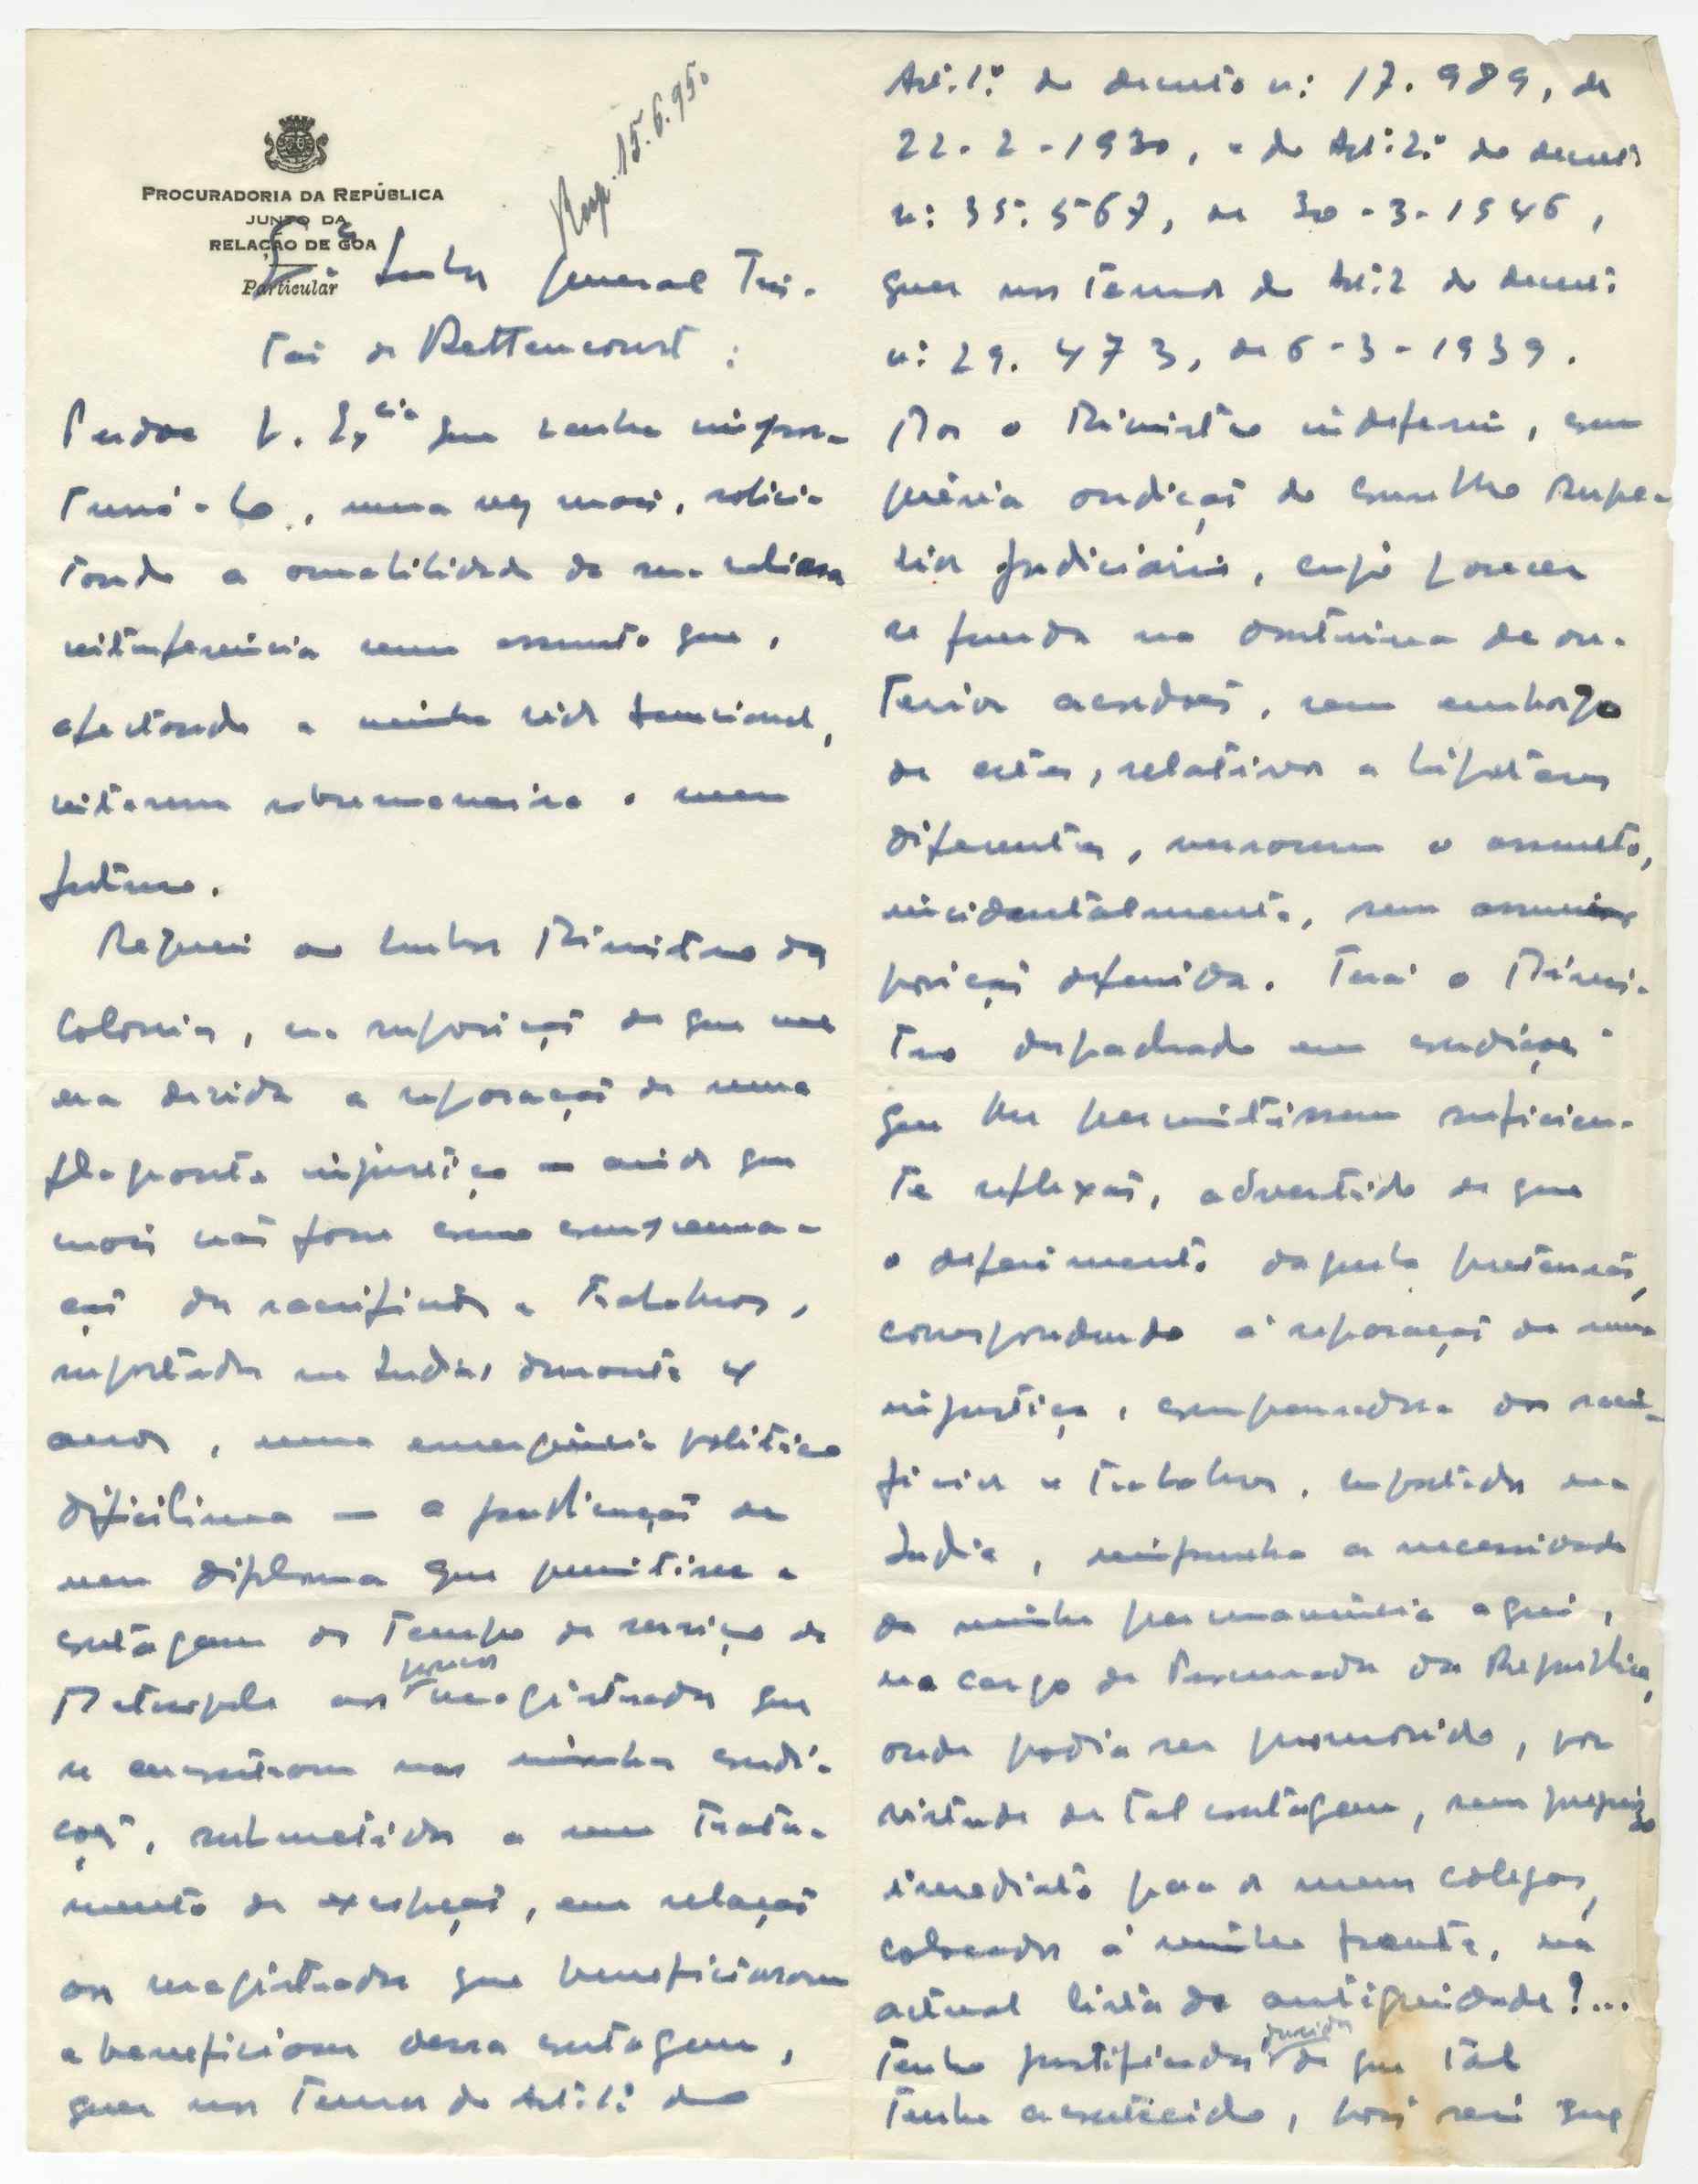 PROCURADORIA DA REPÚBLICA
JUNTO DA
RELAÇÃO DE GOA
Particular
Resp. 15.6.95.
Senhor General Tei-
xeira de Bettencourt:
Perdoe V. Ex.cia que venha impor-
tuná-lo, uma vez mais, solici-
tando a amabilidade da sua valiosa
interferência num assunto que,
afectando a minha vida funcional,
interessa sobremaneira o meu
futuro.
Requeri ao Senhor Ministro das
Colonias, na suposição de que me
era devida a reparação de uma
flagrante injustiça — ainda que
mais não fosse como compensa-
ção dos sacrifícios e trabalhos,
suportados na India, durante 4
anos, numa emergência política
dificílima — a publicação de
um diploma que permitisse a
contagem do tempo de serviço da
Metropole aos poucos magistrados que
se encontram nas minhas condi-
ções, submetidos a um trata-
mento de excepção, em relação
aos magistrados que beneficiaram
e beneficiam dessa contagem,
quer nos termos do Art.º 1.º do
Art.º 1.º do decreto n.º 17.989, de
22-2-1930, e do Art.º 2.º do decreto
n.º 35.567, de 30-3-1946,
quer nos termos do Art.º 2 do decreto
n.º 29.473, de 6-3-1939.
Mas o Ministro indeferiu, com
prévia audição do Conselho Supe-
rior Judiciário, cujo parecer
se funda na doutrina de an-
teriores acordãos, sem embargo
de estes, relativos a hipóteses
diferentes, versarem o assunto,
incidentalmente, sem assumir
posição definida. Terá o Minis-
tro despachado em condições
que lhe permitissem suficien-
te reflexão, advertido de que
o deferimento daquela pretensão,
correspondendo à reparação de uma
injustiça, compensadora dos sacri-
fícios e trabalhos, suportados na
India, impunha a necessidade
da minha permanência aqui,
no cargo de Procurador da Republica,
onde podia ser promovido, por
virtude de tal contagem, sem prejuízo
imediato para os meus colegas,
colocados à minha frente, na
actual lista de antiguidade?...
Tenho justificadas duvidas de que tal
tenha acontecido, pois sei que